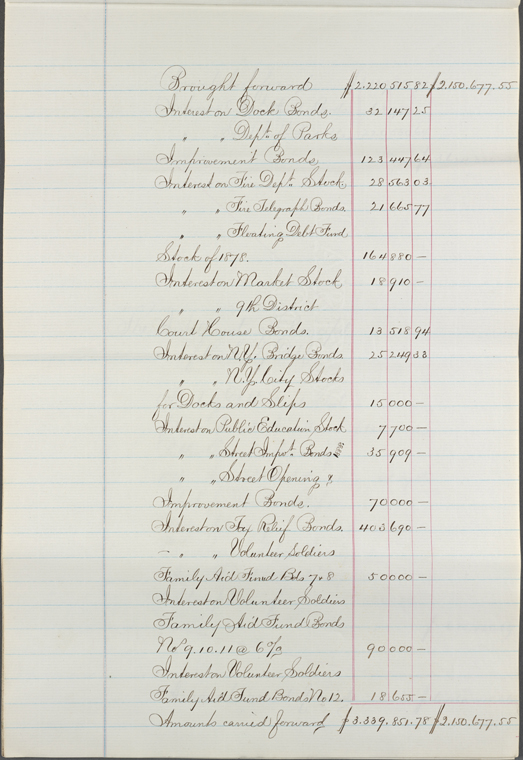 Brought forward $2.220.515.82 $2.150.677.55
Interest on Dock Bonds. 32 147 25
" " Dept. of Parks
Improvement Bonds, 123 447 64
Interest on Fire Dept. Stock, 28 563 03
" " Fire Telegraph Bonds. 21 665 77
" " Floating Debt Fund
Stock of 1878. 164 880 —
Interest on Market Stock 18 910 —
" " 9th District
Court House Bonds. 13 518 94
Interest on N.Y. Bridge Bonds 25 249 33
" " N.Y. City Stocks
for Docks and Slips 15 000 —
Interest on Public Education Stock 7 700 —
" " Street Impvt. Bonds 35 909 —
" " Street Opening &
Improvement Bonds. 70 000 —
Interest on Tax Relief Bonds. 403 690 —
— " " Volunteer Soldiers
Family Aid Fund Bds 7 & 8 50 000 —
Interest on Volunteer Soldiers
Family Aid Fund Bonds
No 9.10.11 @ 6% 90 000 —
Interest on Volunteer Soldiers
Family Aid Fund Bonds No 12. 18 655 —
Amounts carried forward $3.339.851.78 $2.150.677.55